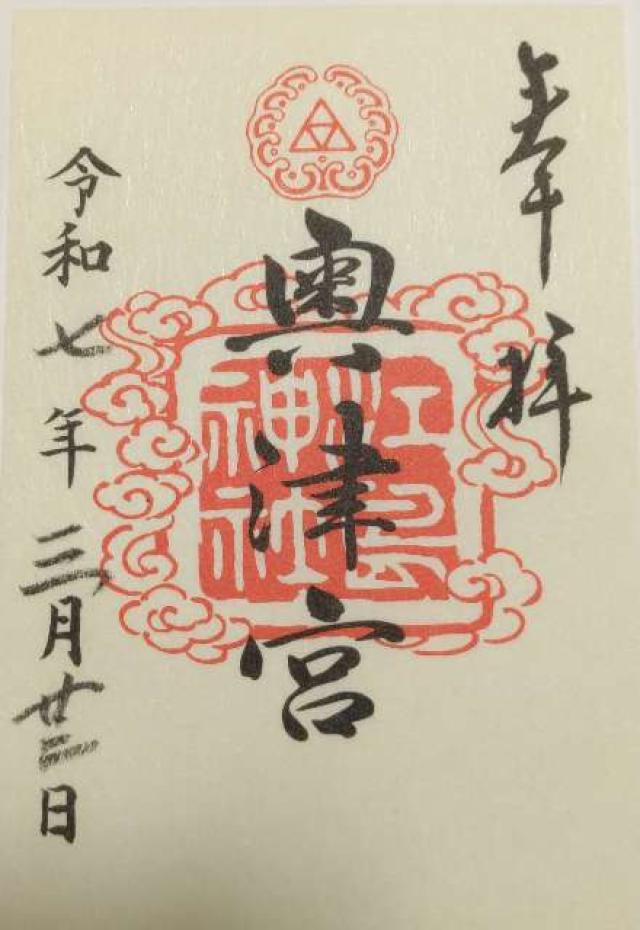 奉拝
奥津宮
江島
神社
令和七年三月廿三日